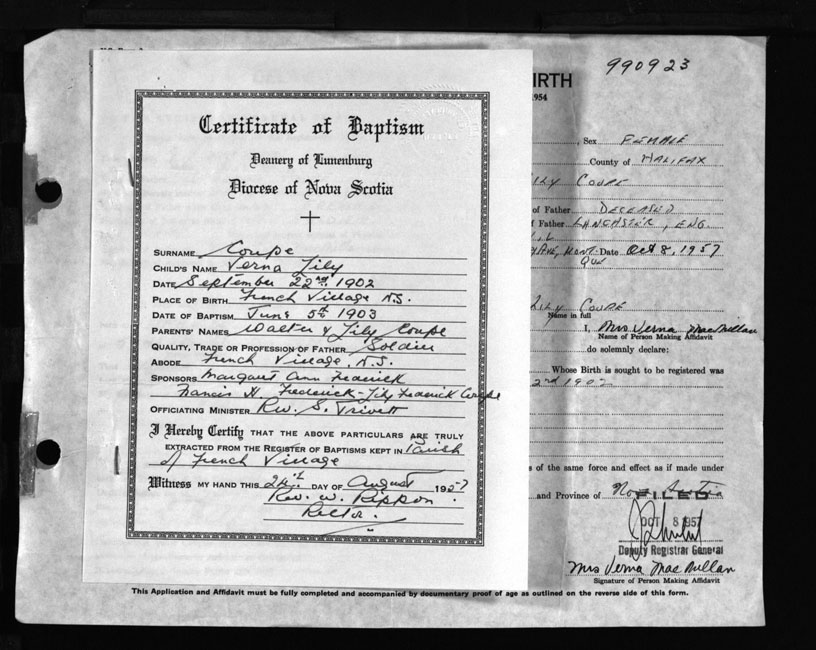 Certificate of Baptism
Deanery of Lunenburg
Diocese of Nova Scotia
SURNAME Coupe
CHILD'S NAME Verna Lily
DATE September 22nd 1902
PLACE OF BIRTH French Village N.S.
DATE OF BAPTISM June 5th 1903
PARENTS' NAMES Walter & Lily Coupe
QUALITY, TRADE OR PROFESSION OF FATHER Soldier
ABODE French Village, N.S.
SPONSORS Margaret Ann Frederick
Francis H. Frederick - Lily Frederick Coupe
OFFICIATING MINISTER Rev. S. Trivett
I Hereby Certify THAT THE ABOVE PARTICULARS ARE TRULY
EXTRACTED FROM THE REGISTER OF BAPTISMS KEPT IN Parish
of French Village
Witness MY HAND THIS 24th DAY OF August 1957
Rev. W. Rippon.
Rector.
990923
BIRTH
1954
, Sex FEMALE
County of HALIFAX
ILY COUPE
of Father DECEASED
f Father LANCASTER, ENG.
AVE, MONT. Date Oct 8, 1957
QUE
LILY COUPE
Name in full
I, Mrs Verna MacMillan
Name of Person Making Affidavit
do solemnly declare:
Whose Birth is sought to be registered was
2nd 1902
s of the same force and effect as if made under
and Province of Nova Scotia
FILED
OCT 8 1957
Deputy Registrar General
Mrs Verna MacMillan
Signature of Person Making Affidavit
This Application and Affidavit must be fully completed and accompanied by documentary proof of age as outlined on the reverse side of this form.